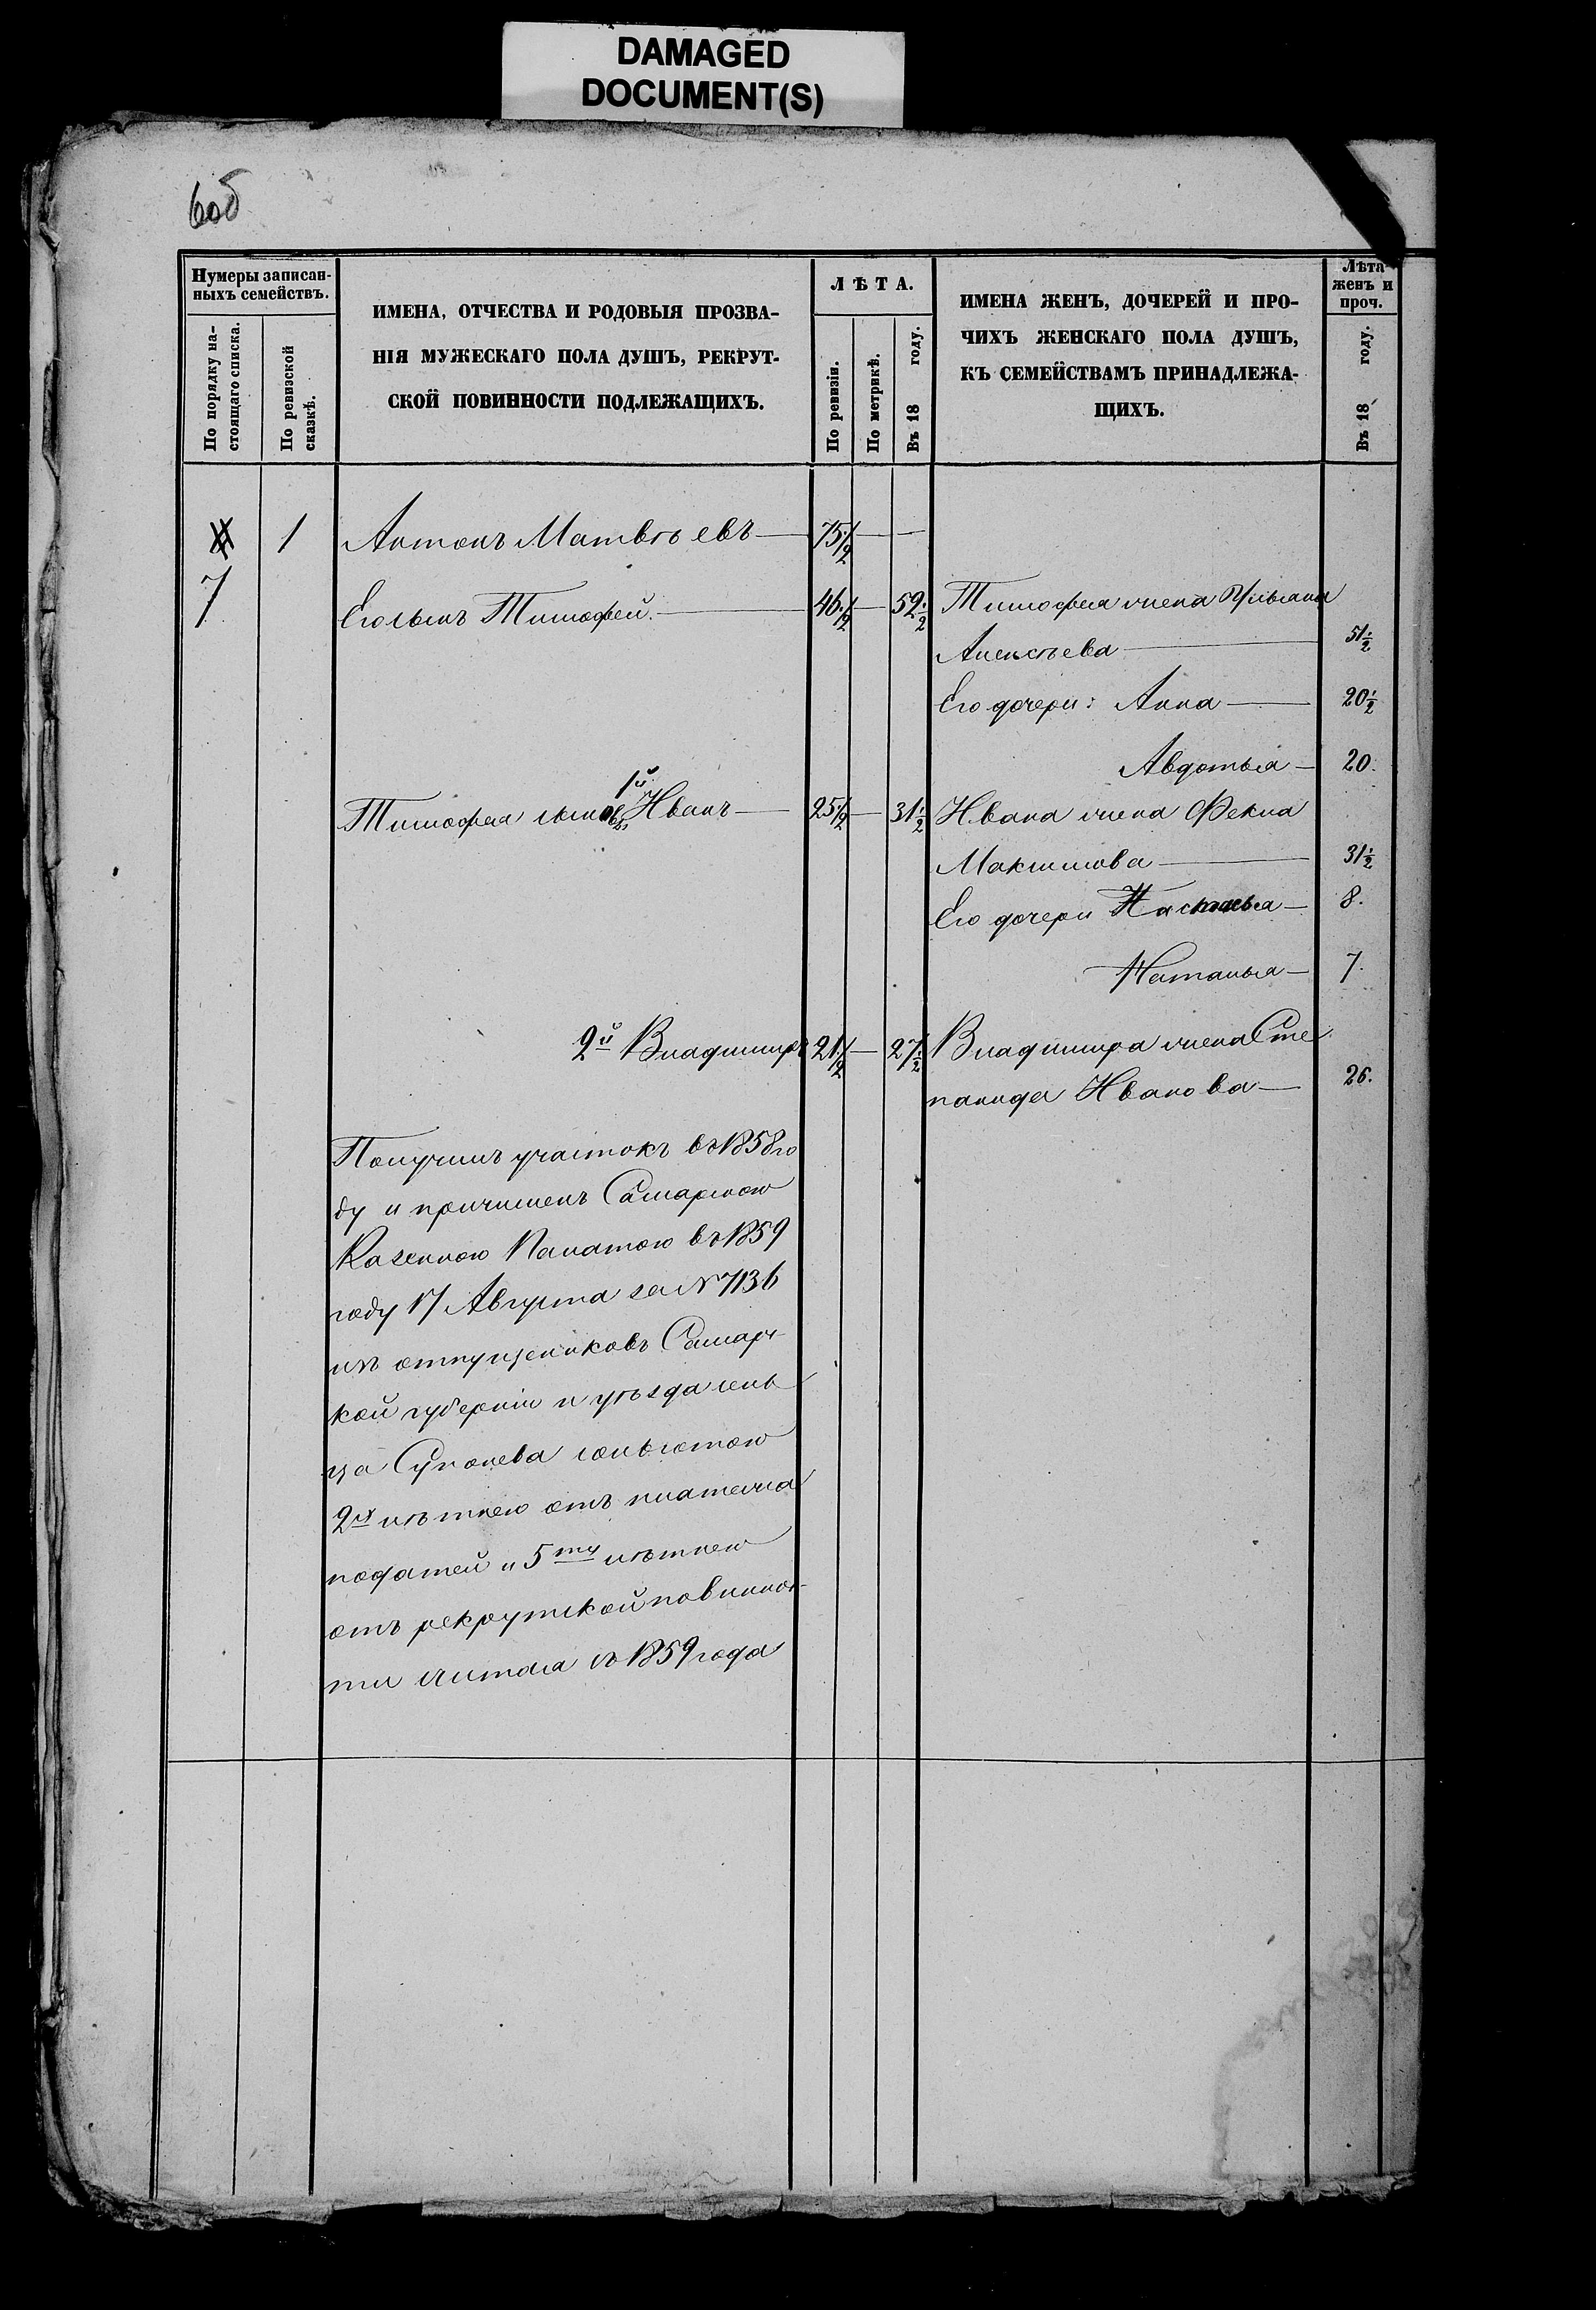 DAMAGED
DOCUMENT(S)
6об
Нумеры записан-
ныхъ семействъ.
По порядку на-
стоящаго списка.
По ревизской
сказкѣ.
ИМЕНА, ОТЧЕСТВА И РОДОВЫЯ ПРОЗВА-
НІЯ МУЖЕСКАГО ПОЛА ДУШЪ, РЕКРУТ-
СКОЙ ПОВИННОСТИ ПОДЛЕЖАЩИХЪ.
ЛѢТА.
По ревизіи.
По метрикѣ.
Въ 18 году.
ИМЕНА ЖЕНЪ, ДОЧЕРЕЙ И ПРО-
ЧИХЪ ЖЕНСКАГО ПОЛА ДУШЪ,
КЪ СЕМЕЙСТВАМЪ ПРИНАДЛЕЖА-
ЩИХЪ.
Лѣта
женъ и
проч.
Въ 18 году.
1 Антонъ Матвѣевъ — 75 1/2 — —
7 Его сынъ Тимофей. — 46 1/2 — 52 1/2 Тимофея жена Ульяна
Алексѣева — 51 1/2
Его дочери: Анна — 20 1/2
Авдотья — 20.
1й
Тимофея сыновья Иванъ — 25 1/2 — 31 1/2 Ивана жена Фекла
Максимова — 31 1/2
Его дочери Настасья — 8.
Наталья — 7.
2й Владимиръ 21 1/2 — 27 1/2 Владимира жена Сте
панида Иванова — 26.
Получилъ участокъ въ 1858 го
ду и причисленъ Самарскою
Казенною Палатою въ 1859
году 17 Августа за № 7136
изъ отпущенниковъ Самарс-
кой губерніи и уѣзда сель
ца Суконева сольготою
2х лѣтнею отъ платежа
податей и 5ти лѣтнею
отъ рекрутской повиннос-
ти считая съ 1859 года